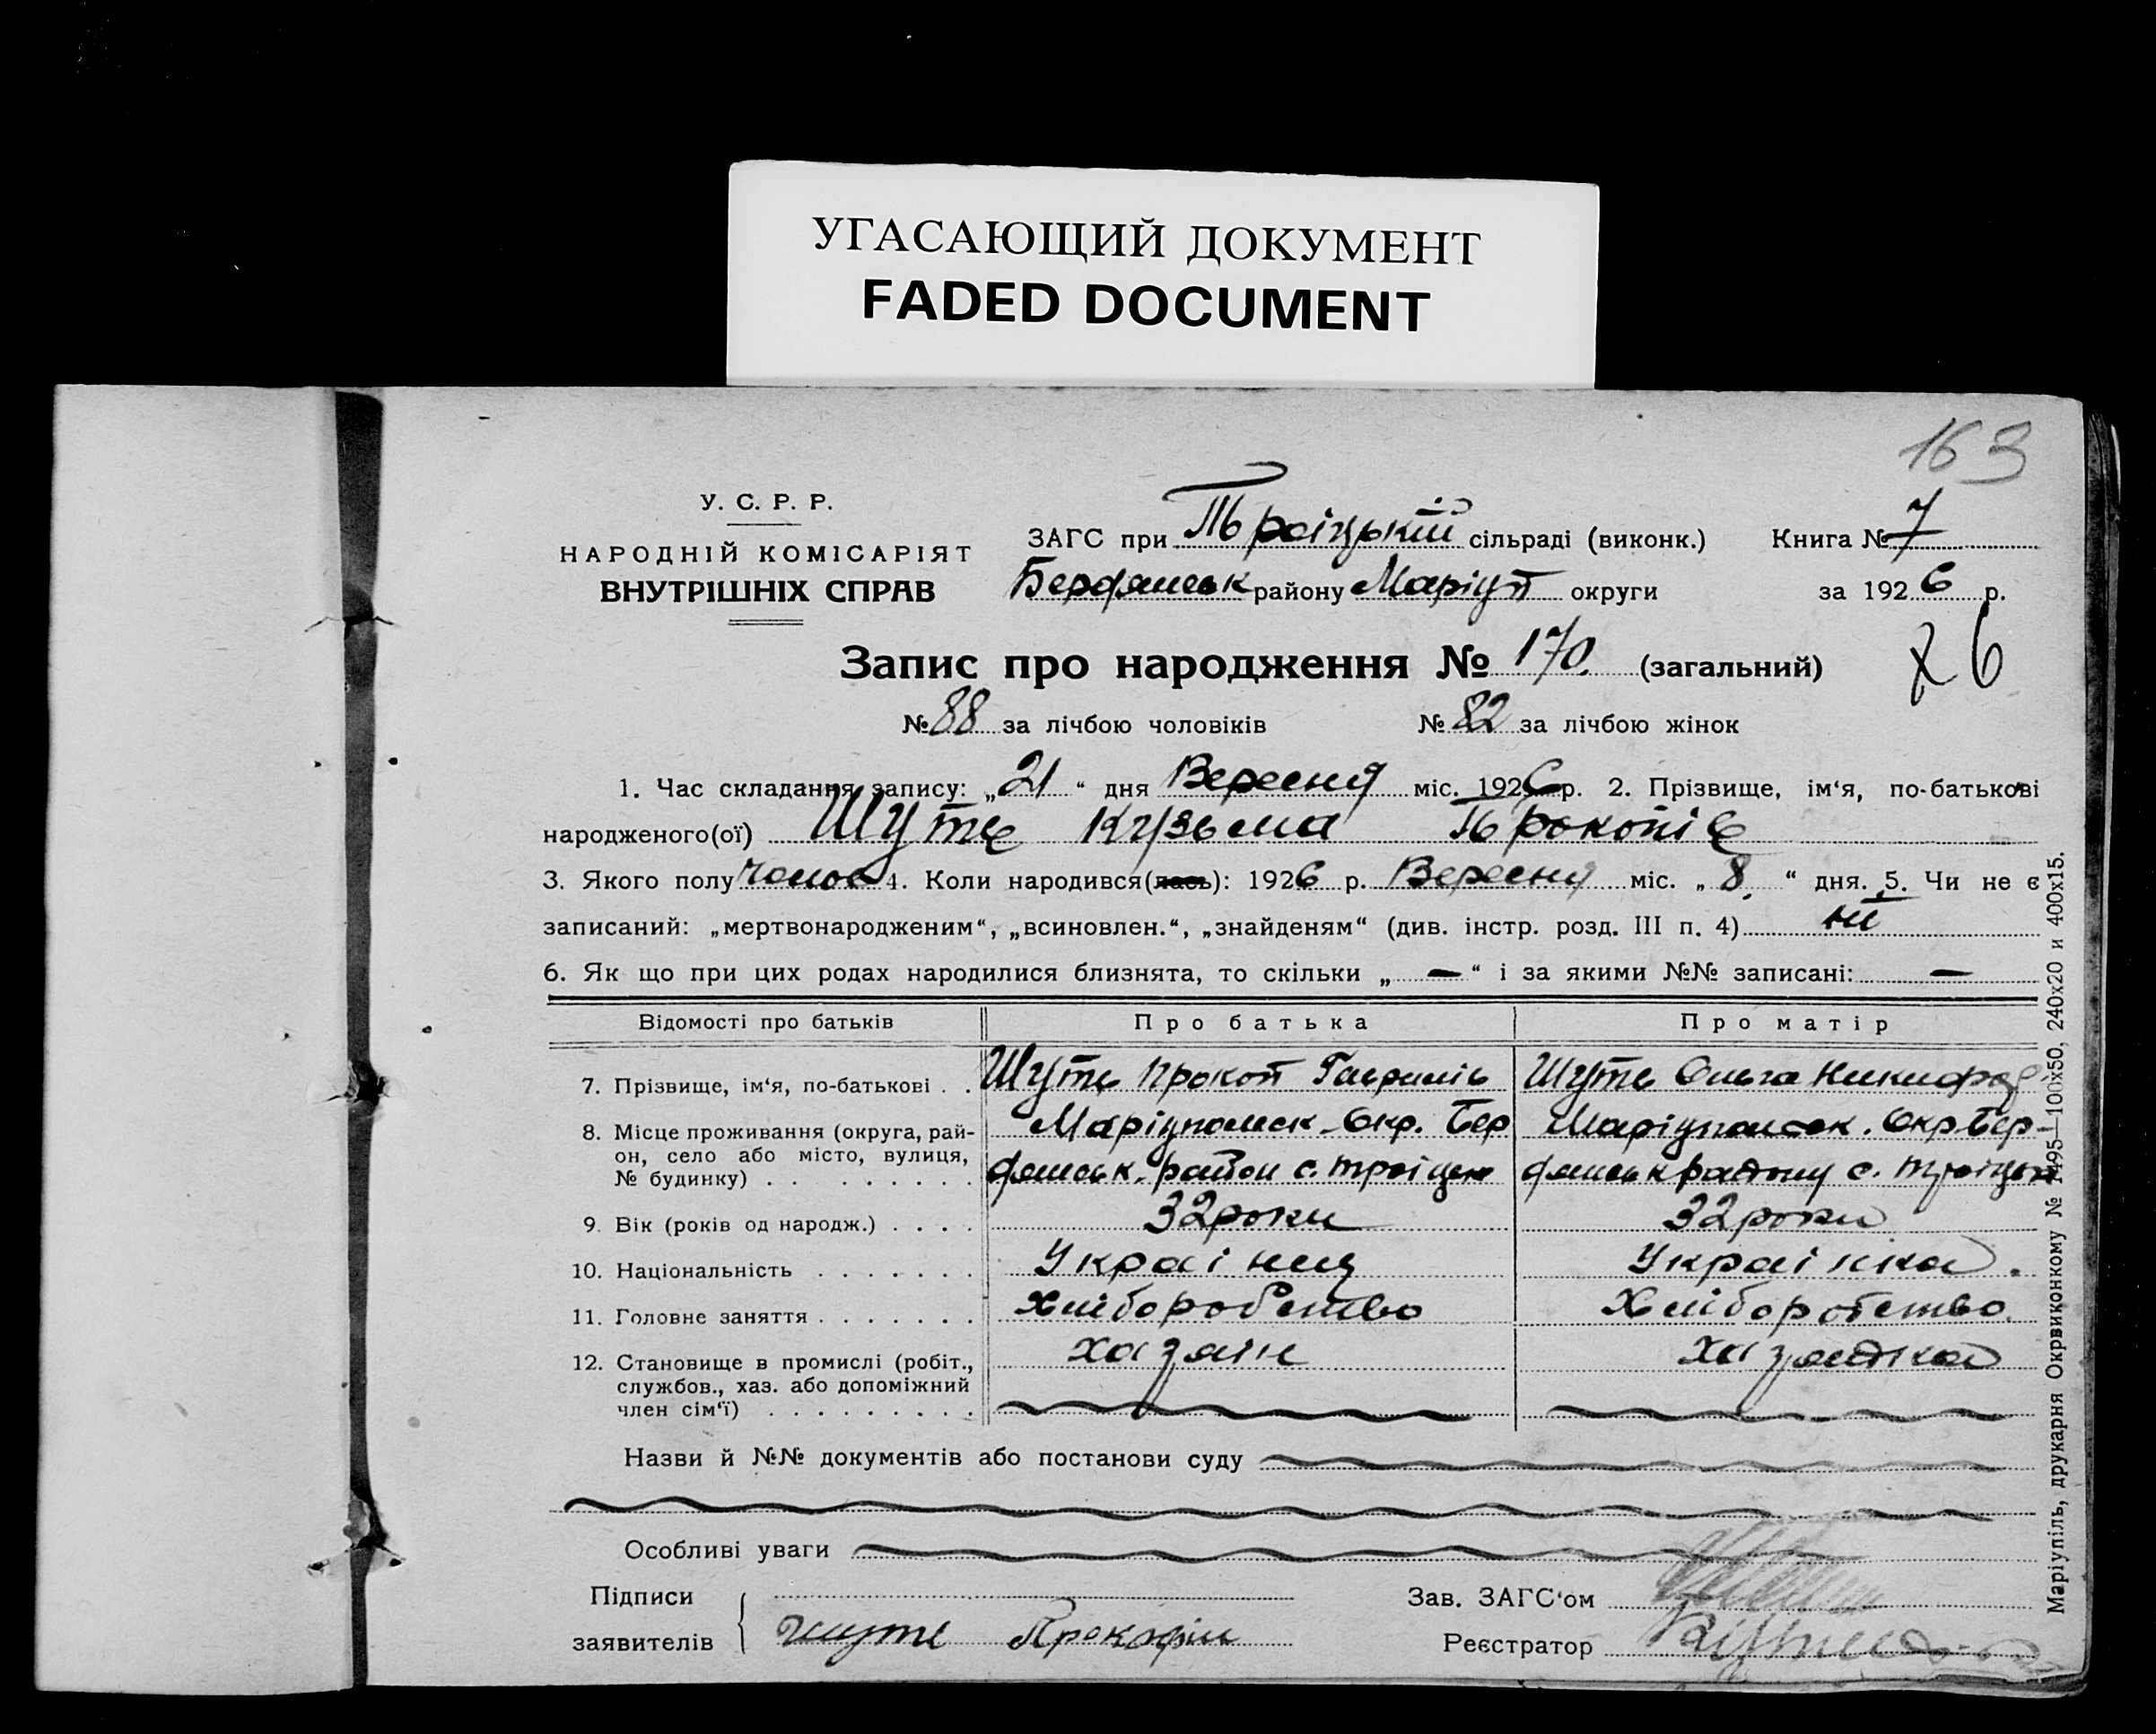 УГАСАЮЩИЙ ДОКУМЕНТ
FADED DOCUMENT
163
У. С. Р. Р.
НАРОДНІЙ КОМІСАРІЯТ
ВНУТРІШНІХ СПРАВ
ЗАГС при Троіцькій сільраді (виконк.) Книга № 7
Бердянськ району Маріуп округи за 1926 р.
Запис про народження № 170. (загальний)
26
№ 88 за лічбою чоловіків № 82 за лічбою жінок
1. Час складання запису: „21“ дня Вересня міс. 1926 р. 2. Прізвище, ім‘я, по-батькові
народженого(ої) Шуть Кузьма Прокопів
3. Якого полу чолов 4. Коли народився(лась): 1926 р. Вересня міс. „8.“ дня. 5. Чи не є
записаний: „мертвонародженим“, „всиновлен.“, „знайденям“ (див. інстр. розд. III п. 4) ні
6. Як що при цих родах народилися близнята, то скільки „—“ і за якими №№ записані: —
Відомості про батьків Про батька Про матір
7. Прізвище, ім‘я, по-батькові . . Шуть Прокоп Гаврилів Шуть Ольга Никифор
8. Місце проживання (округа, рай- Маріупольск. Окр. Бер Маріупольск. Окр. Бер-
он, село або місто, вулиця, дянськ. район с. Троіцьк дянськ району с. Троіцьк
№ будинку) . . . . . . . .
9. Вік (років од народж.) . . . . 32 роки 32 роки
10. Національність . . . . . . . Украінец Украінка.
11. Головне заняття . . . . . . . Хліборобство Хліборобство.
12. Становище в промислі (робіт., хазяін хазяйка
службов., хаз. або допоміжний
член сім‘ї) . . . . . . . . .
Назви й №№ документів або постанови суду
Особливі уваги
Підписи Зав. ЗАГС‘ом
заявителів Шуть Прокофій Реєстратор
Маріупіль, друкарня Окрвиконкому № 1495—100х50, 240х20 и 400х15.